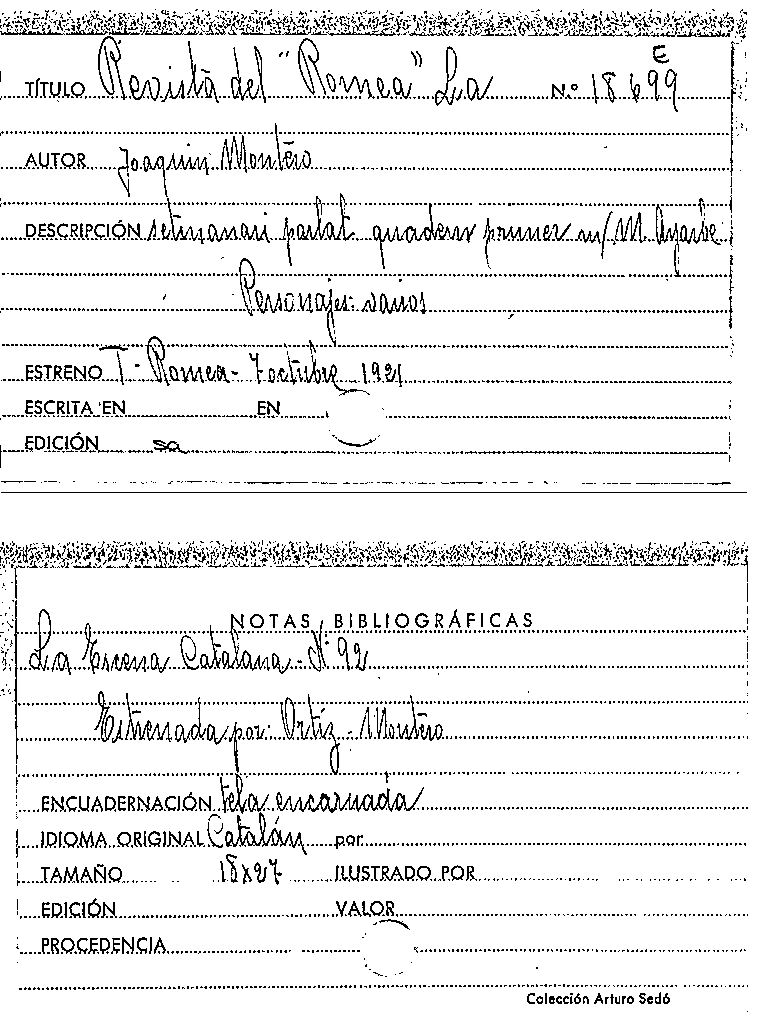 E
TÍTULO Revista del "Romea" La N.º 18699
AUTOR Joaquin Montero
DESCRIPCIÓN setmanari parlat quadern primer m/ M. Ayarbe
Personajes: varios
ESTRENO T. Romea - 7 octubre 1921
ESCRITA EN EN
EDICIÓN sa
NOTAS BIBLIOGRÁFICAS
La Escena Catalana - Nº 92
Estrenada por: Ortiz - Montero
ENCUADERNACIÓN tela encarnada
IDIOMA ORIGINAL Catalán por
TAMAÑO 18x27 ILUSTRADO POR
EDICIÓN VALOR
PROCEDENCIA
Colección Arturo Sedó